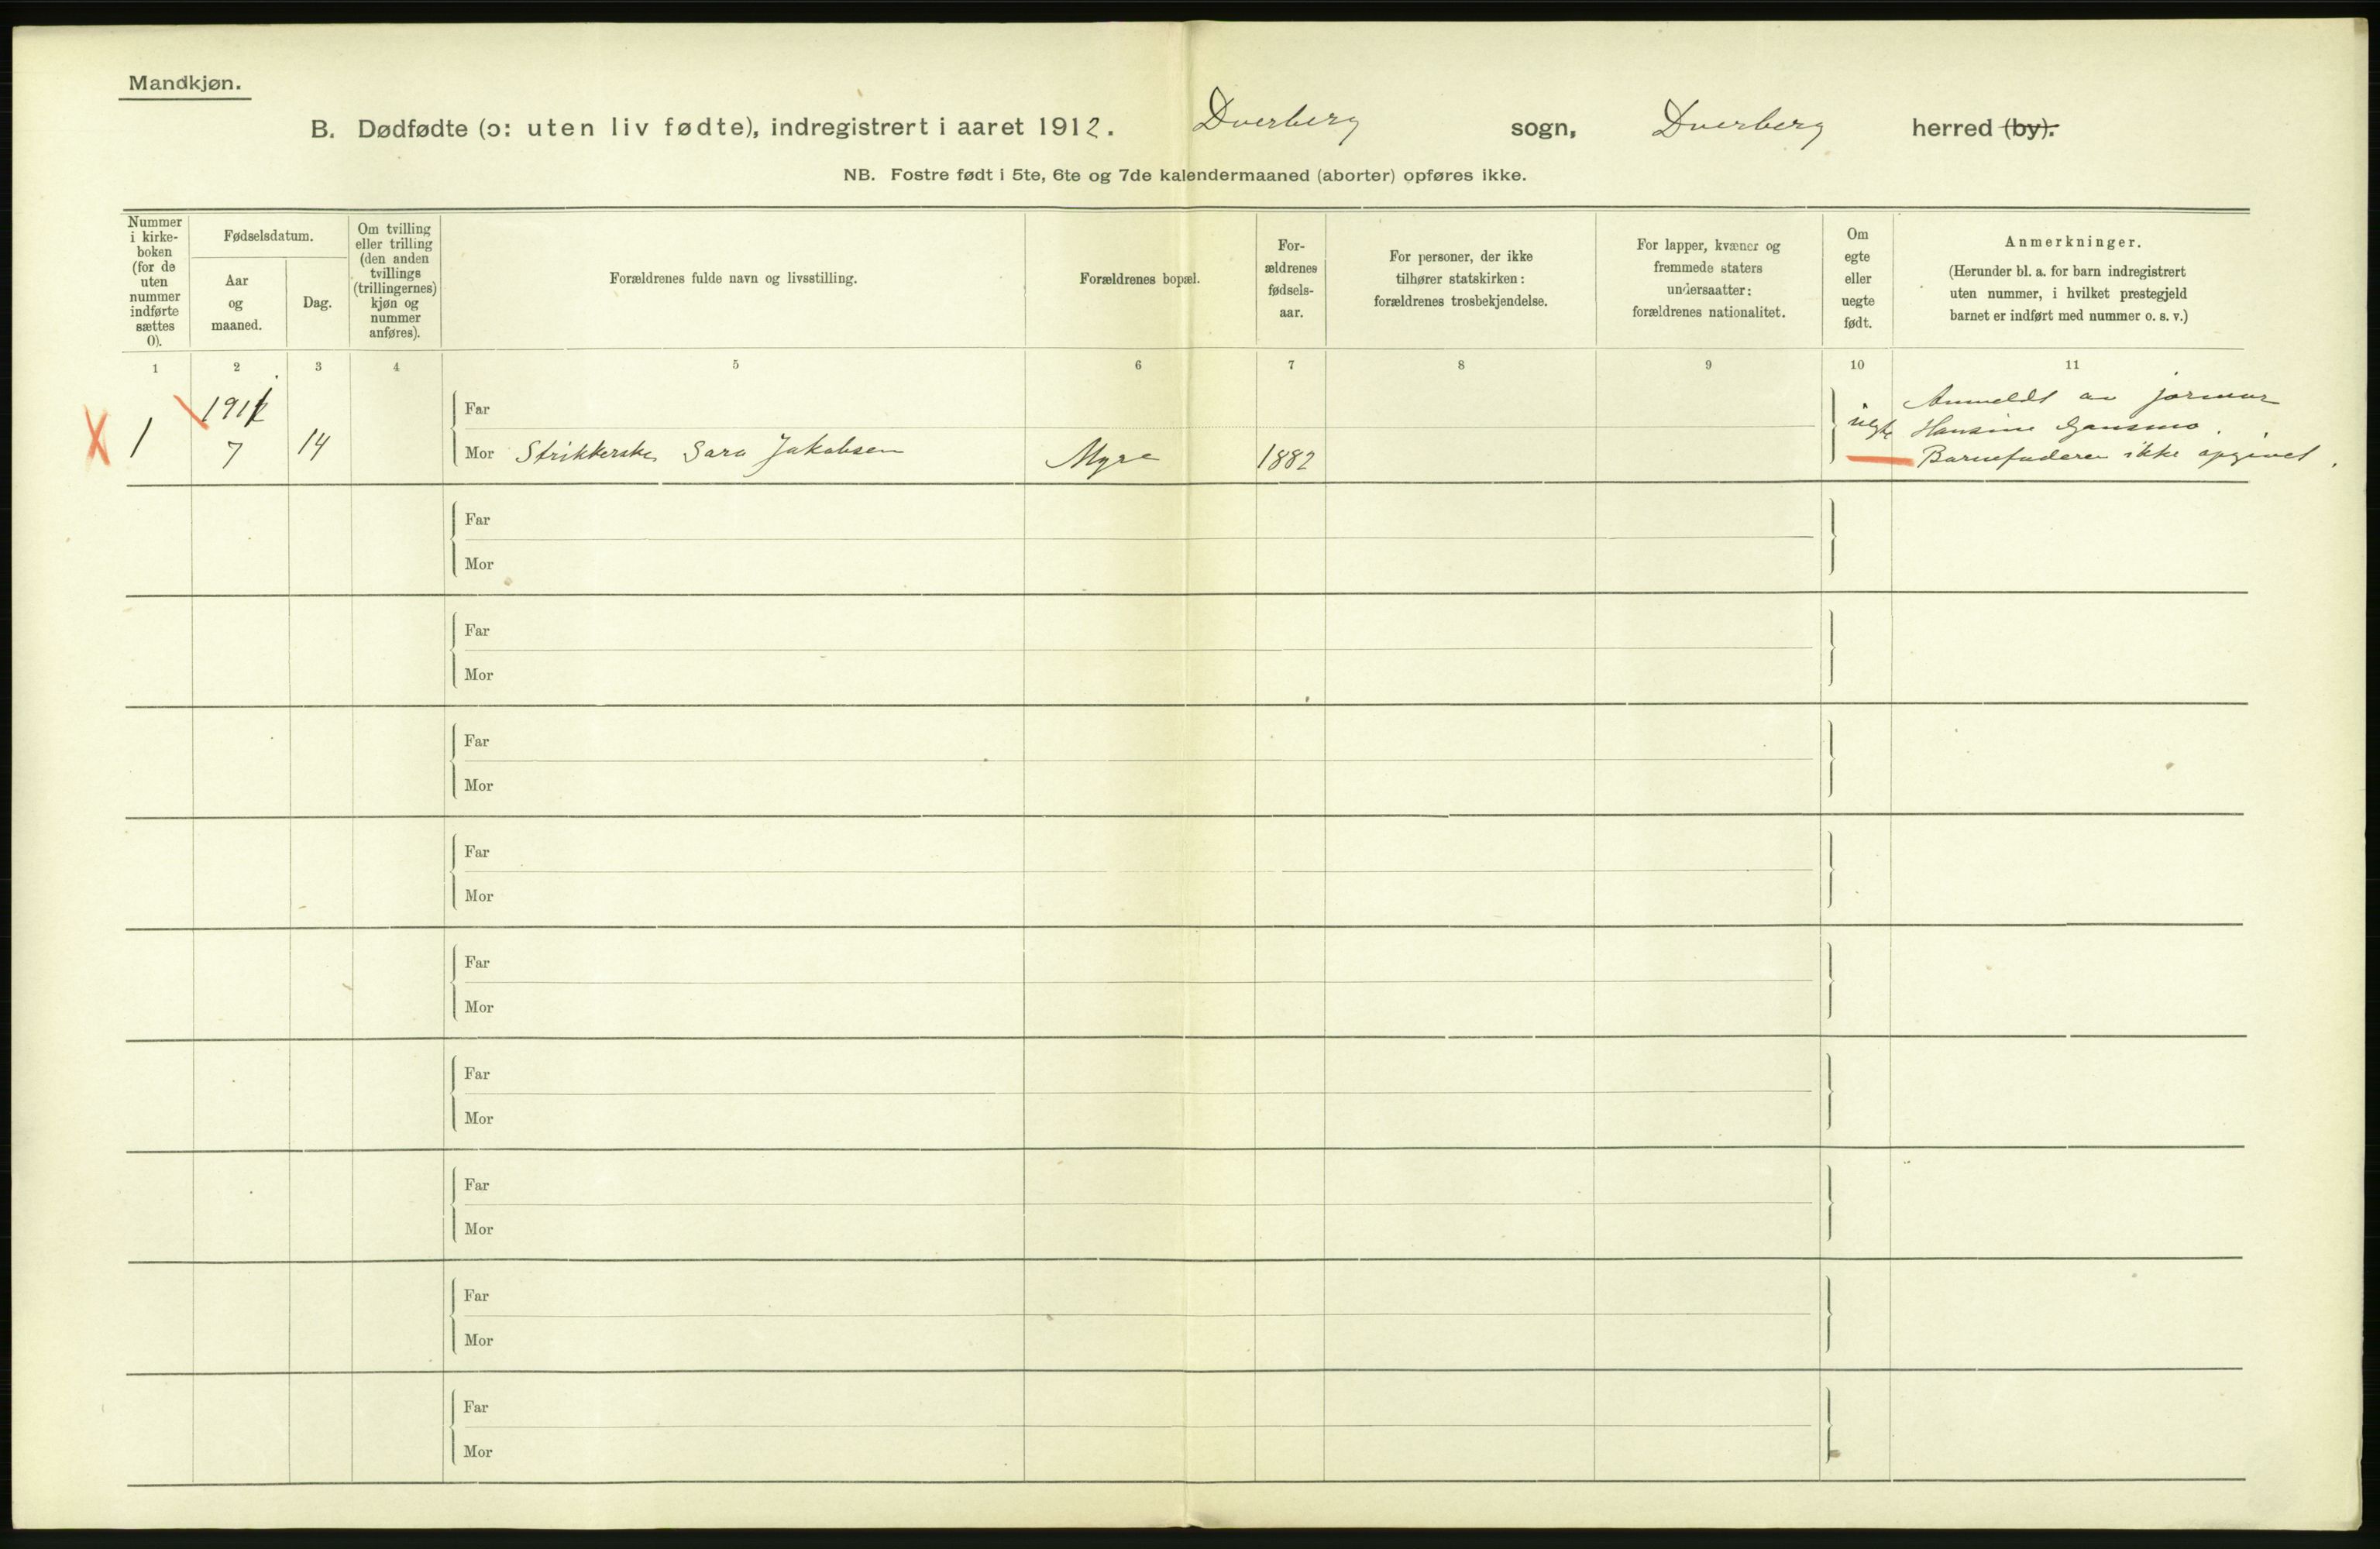 Mandkjøn.
B. Dødfødte (ɔ: uten liv fødte), indregistrert i aaret 1912. Dverberg sogn, Dverberg herred (by).
NB. Fostre født i 5te, 6te og 7de kalendermaaned (aborter) opføres ikke.
Nummer
i kirke-
boken
(for de
uten
nummer
indførte
sættes
0).
Fødselsdatum.
Aar
og
maaned.
Dag.
Om tvilling
eller trilling
(den anden
tvillings
(trillingernes)
kjøn og
nummer
anføres).
Forældrenes fulde navn og livsstilling.
Forældrenes bopæl.
For-
ældrenes
fødsels-
aar.
For personer, der ikke
tilhører statskirken:
forældrenes trosbekjendelse.
For lapper, kvæner og
fremmede staters
undersaatter:
forældrenes nationalitet.
Om
egte
eller
uegte
født.
Anmerkninger.
(Herunder bl. a. for barn indregistrert
uten nummer, i hvilket prestegjeld
barnet er indført med nummer o. s. v.)
1 2 3 4 5 6 7 8 9 10 11
X 1
1912
7
14
Far
Mor Strikkerske Sara Jakobsen
Myre
1882
uegte
Anmeldt av jormor
Hansine
Barnefaderen ikke opgivet.
Far
Mor
Far
Mor
Far
Mor
Far
Mor
Far
Mor
Far
Mor
Far
Mor
Far
Mor
Far
Mor